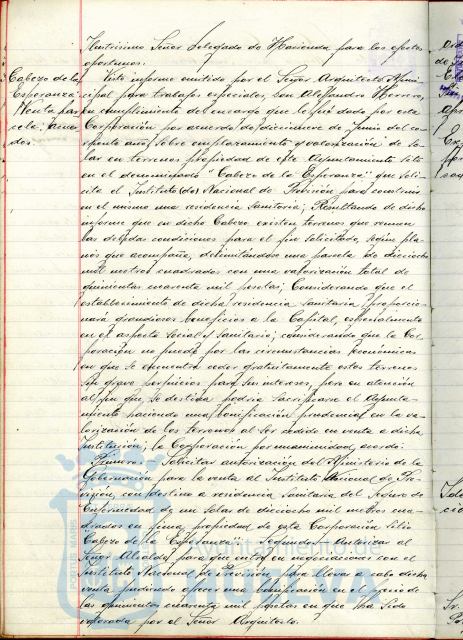 Ilustrísimo Señor Delegado de Hacienda para los efectos
oportunos.
Cabezo de la
Esperanza.
Venta par
cela. Acuer
dos.
Visto informe emitido por el Señor Arquitecto Muni-
cipal para trabajos especiales, don Alejandro Herrero,
en cumplimiento del encargo que le fué dado por esta
Corporación por acuerdo de diecinueve de junio del co-
rriente año, sobre emplazamiento y valorización de so-
lar en terrenos propiedad de este Ayuntamiento sito
en el denominado "Cabezo de la Esperanza" que soli-
cita el Instituto Nacional de Previsión para construir
en el mismo una residencia Sanitaria; Resultando de dicho
informe que en dicho Cabezo existen terrenos que reunen
las debidas condiciones para el fin solicitado, según pla-
nos que acompaña, delimitándose una parcela de dieciocho
mil metros cuadrados con una valorización total de
quinientas cuarenta mil pesetas; Considerando que el
establecimiento de dicha residencia sanitaria, proporcio-
nará grandiosos beneficios a la Capital, especialmente
en el aspecto social y sanitario; considerando que la Cor-
poración no puede por las circunstancias económicas
en que se encuentra ceder gratuitamente estos terrenos
sin grave perjuicio para sus intereses, pero en atención
al fin que se destina podría sacrificarse el Ayunta-
miento haciendo una bonificación prudencial en la va-
lorización de los terrenos al ser cedido en venta a dicha
Institución; la Corporación por unanimidad, acordó:
Primero: Solicitar autorización del Ministerio de la
Gobernación para la venta al Instituto Nacional de Pre-
visión, con destino a residencia sanitaria del Seguro de
Enfermedad de un solar de dieciocho mil metros cua-
drados en finca propiedad de esta Corporación sitio
"Cabezo de la Esperanza". Segundo: Autorizar al
Señor Alcalde para que entre en negociaciones con el
Instituto Nacional de Previsión para llevar a cabo dicha
venta pudiendo ofrecer una bonificación en el precio de
las quinientas cuarenta mil pesetas en que ha sido
valorada por el Señor Arquitecto.
Ayuntamiento de
HUELVA